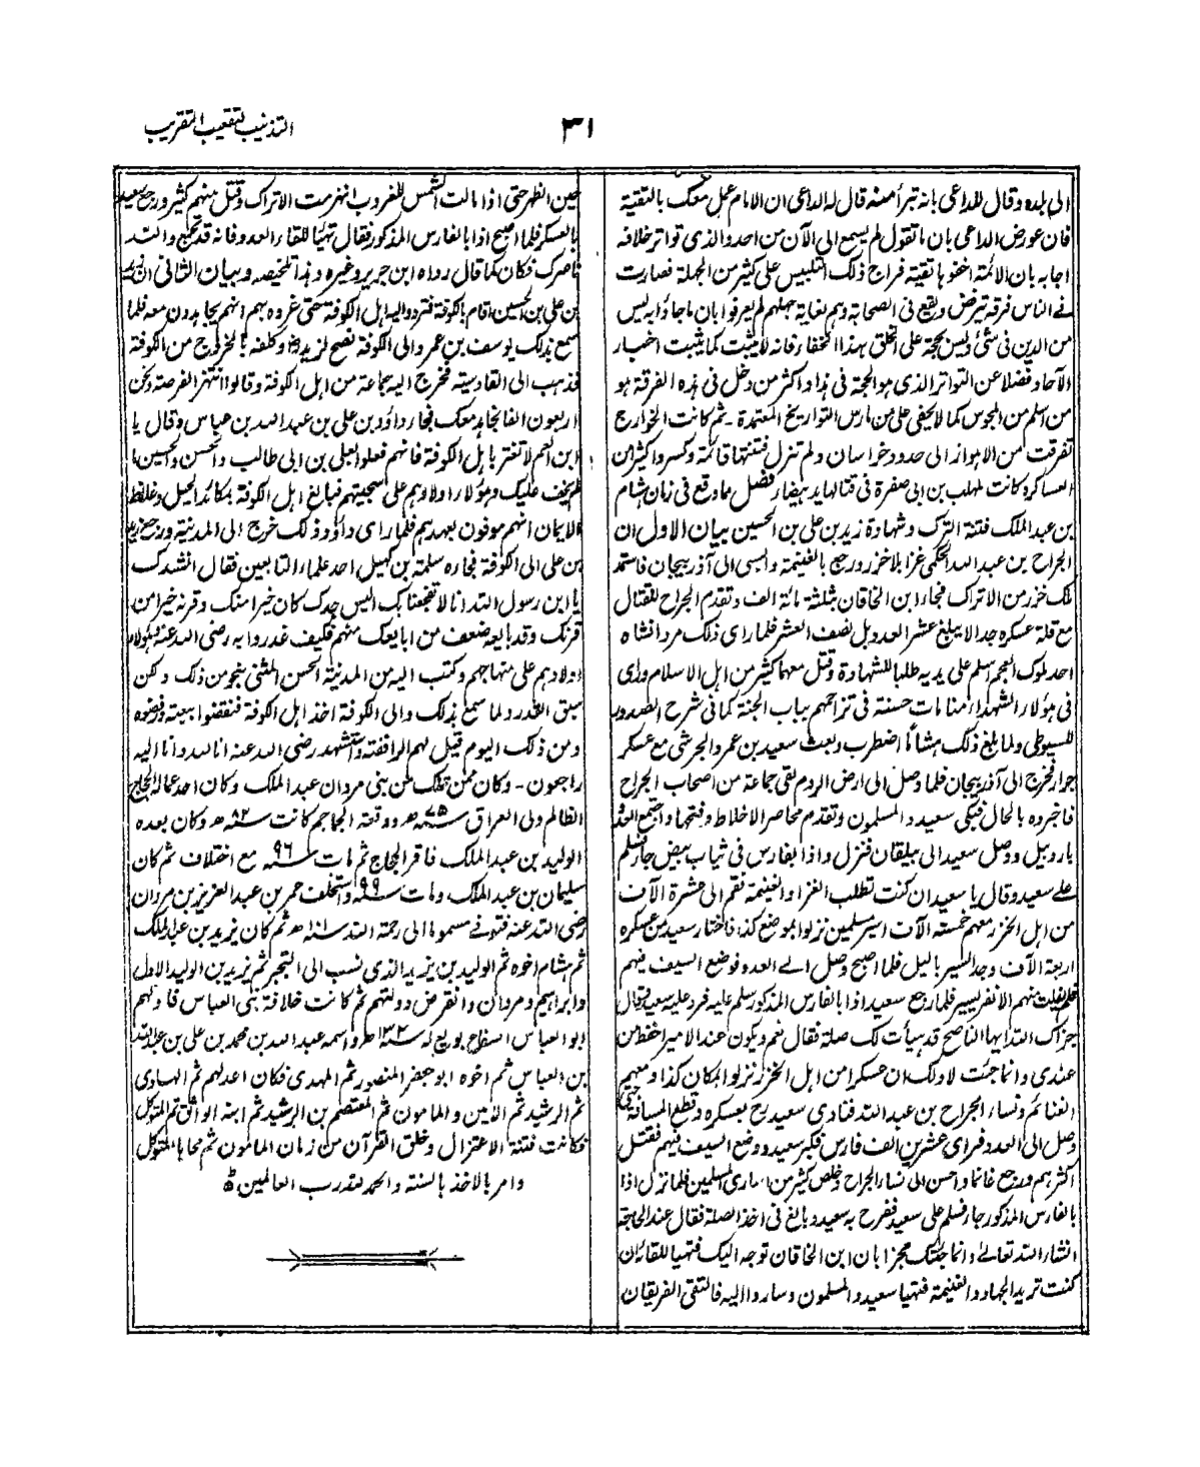 التذنيب لتعقيب التقريب
٣١
الى بلده وقال للداعى بانه تبرأ منه قال له الداعى ان الامام عمل معك بالتقية
فان عورض الداعى بان ما تقول لم يسمع الى الآن من احد والذى تواتر خلافه
اجابه بان الائمة اخفوها تقية فراج ذلك التلبيس على كثير من الجهلة فصارت
فى الناس فرقة ترفض ويقع فى الصحابة وهم لغاية جهلهم لم يعرفوا بان ما جاؤا به ليس
من الدين فى شئ وليس بحجة على الخلق بهذا الخفاء فانه لا يثبت كما يثبت اخبار
الآحاد فضلا عن التواتر الذى هو الحجة فى هذا واكثر من دخل فى هذه الفرقة هو
من اسلم من المجوس كما لا يخفى على من مارس التواريخ المعتمدة - ثم كانت الخوارج
تفرقت من الاهواز الى حدود خراسان ولم تنزل فتنتها قائمة وكسروا كثيرا من
العساكر وكانت لمهلب بن ابى صفرة فى قتالها يد بيضاء فصل مما وقع فى زمان هشام
بن عبد الملك فتنة الترك وشهادة زيد بن على بن الحسين بيان الاول ان
الجراح بن عبد الله الحكمى غزا بلا خزر ورجع بالغنيمة والسبى الى آذربيجان فاستمد
ملك خزر من الاتراك فجاء ابن الخاقان بثلثة مائة الف وتقدم الجراح للقتال
مع قلة عسكره جدا لا يبلغ عشر العدو بل نصف العشر فلما راى ذلك مردانشاه
احد ملوك العجم اسلم على يديه طلبا للشهادة وقتل معهما كثير من اهل الاسلام وراى
فى هؤلاء الشهداء منامات حسنة فى تزاحمهم بباب الجنة كما فى شرح الصدور
للسيوطى ولما بلغ ذلك هشاما اضطرب وبعث سعيد بن عمرو الجرشى مع عسكر
جرار فخرج الى آذربيجان فلما وصل الى ارض الروم لقى جماعة من اصحاب الجراح
فاخبروه بالحال فبكى سعيد والمسلمون وتقدم محاصر الاخلاط وفتحها واجتمع العدو
باردبيل ووصل سعيد الى بيلقان فنزل واذا بفارس فى ثياب بيض جاء فسلم
على سعيد وقال يا سعيد ان كنت تطلب الغزاء والغنيمة فقم الى عشرة الآف
من اهل الخزر معهم خمسته الآف اسير مسلمين نزلوا بموضع كذا فاختار سعيد من عسكره
اربعة الآف وجد السير بالليل فلما اصبح وصل الى العدو فوضع السيف فيهم
فلم يفلت منهم الا نفر يسير فلما رجع سعيد اذا بالفارس المذكور سلم عليه فرد عليه سعيد وقال
جزاك الله ايها الناصح قد هيأت لك صلة فقال نعم ويكون عند الامير احفظ من
عندى وانما جئت لادلك ان عسكرا من اهل الخزر نزلوا بمكان كذا ومعهم
الغنائم ونساء الجراح بن عبد الله فنادى سعيد ريح بعسكره وقطع المسافة حتى
وصل الى العدو فراى عشرين الف فارس فكبر سعيد ووضع السيف فيهم فقتل
اكثرهم ورجع غانما واحسن الى نساء الجراح وخلص كثير من اسارى المسلمين فلما نزل اذا
بالفارس المذكور جاء فسلم على سعيد ففرح به سعيد وبالغ فى اخذ الصلة فقال عند الحاجة
انشاء الله تعالى وانما جئتك مخبرا بان ابن الخاقان توجه اليك فتهيا للقائه ان
كنت تريد الجهاد والغنيمة فتهيا سعيد والمسلمون وساروا اليه فالتقى الفريقان
حين الظهر حتى اذا مالت الشمس للغروب انهزمت الاتراك وقتل منهم كثير ورجع سعيد
بالعسكر فلما اصبح اذا بالفارس المذكور فقال تهيأ للقاء العدو فانه قد تجمع والله
ناصرك فكان كما قال رواه ابن جرير وغيره وهذا تلخيصه وبيان الثانى ان زيد
بن على بن الحسين اقام بالكوفة فتردد اليه اهل الكوفة حتى غروه بهم انهم يجاهدون معه فلما
سمع بذلك يوسف بن عمر والى الكوفة نصح لزيد وكلفه بالخروج من الكوفة
فذهب الى القادسية فخرج اليه جماعة من اهل الكوفة وقالوا انتهز الفرصة ونحن
اربعون الفا نجاهد معك فجاء داؤد بن على بن عبد الله بن عباس وقال يا
ابن العم لا تغتر باهل الكوفة فانهم فعلوا بعلى بن ابى طالب والحسن والحسين ما
لم يخف عليك وهؤلاء اولادهم على سجيتهم فبالغ اهل الكوفة بمكائد الحيل وغلظ
الايمان انهم موفون بعهدهم فلما راى داؤد ذلك خرج الى المدينة ورجع زيد
بن على الى الكوفة فجاءه سلمة بن كهيل احد علماء التابعين فقال انشدك
يا ابن رسول الله ان لا تفجعنا بك اليس جدك كان خيرا منك وقرنه خير من
قرنك وقد بايعه ضعف من بايعك منهم فكيف غدروا به رضى الله عنه فهؤلاء
اولادهم على منهاجهم وكتب اليه من المدينة الحسن المثنى بنحو من ذلك ولكن
سبق القدر ولما سمع بذلك والى الكوفة اخذ اهل الكوفة فنقضوا بيعته ورفضوه
ومن ذلك اليوم قيل لهم الرافضة واستشهد رضى الله عنه انا لله وانا اليه
راجعون - وكان ممن تملك من بنى مروان عبد الملك وكان احد عماله الحجاج
الظالم ولى العراق سنة ٧٥ه ووقعة الجماجم كانت سنة ٨٢ه وكان بعده
الوليد بن عبد الملك فاقر الحجاج ثم مات سنة ٩٦ مع اختلاف ثم كان
سليمان بن عبد الملك ومات سنة ٩٩ واستخلف عمر بن عبد العزيز بن مروان
رضى الله عنه فتوفى مسموما الى رحمة الله سنة ١٠١ه ثم كان يزيد بن عبد الملك
ثم هشام اخوه ثم الوليد بن يزيد الذى نسب الى التجبر ثم يزيد بن الوليد الاول
وابراهيم ومروان وانقرض دولتهم ثم كانت خلافة بنى العباس فاولهم
ابو العباس السفاح بويع له سنة ١٣٢ه واسمه عبد الله بن محمد بن على بن عبد الله
بن العباس ثم اخوه ابو جعفر المنصور ثم المهدى فكان اعدلهم ثم الهادى
ثم الرشيد ثم الامين والمامون ثم المعتصم بن الرشيد ثم ابنه الواثق ثم المتوكل
فكانت فتنة الاعتزال وخلق القرآن من زمان المامون ثم محاها المتوكل
وامر بالاخذ بالسنة والحمد لله رب العالمين